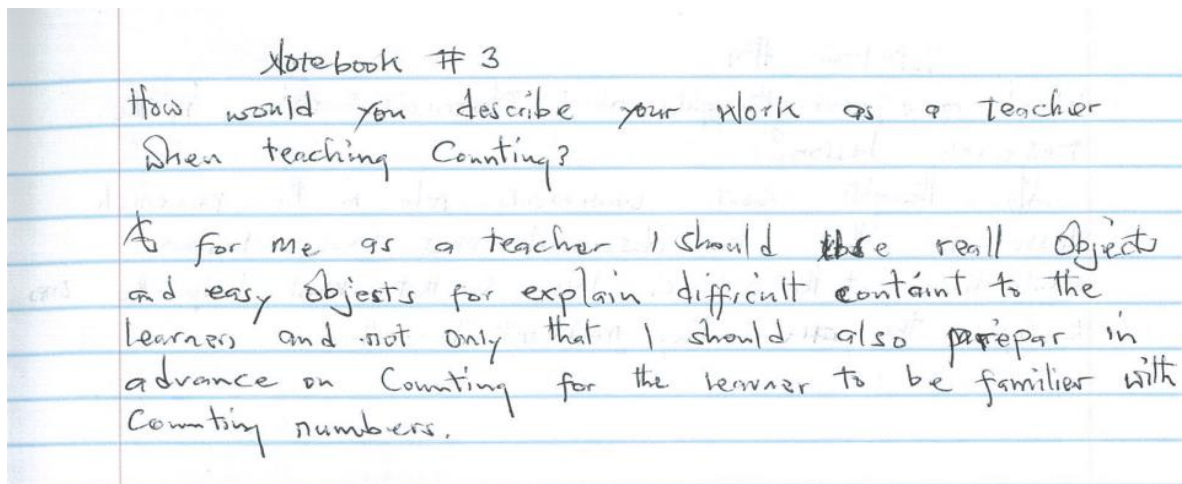 Notebook # 3
How would you describe your Work as a teacher
When teaching Counting?
As for me as a teacher I should use reall Objects
and easy Objests for explain difficult containt to the
learners and not only that I should also prepar in
advance on Counting for the learner to be familier with
Counting numbers.